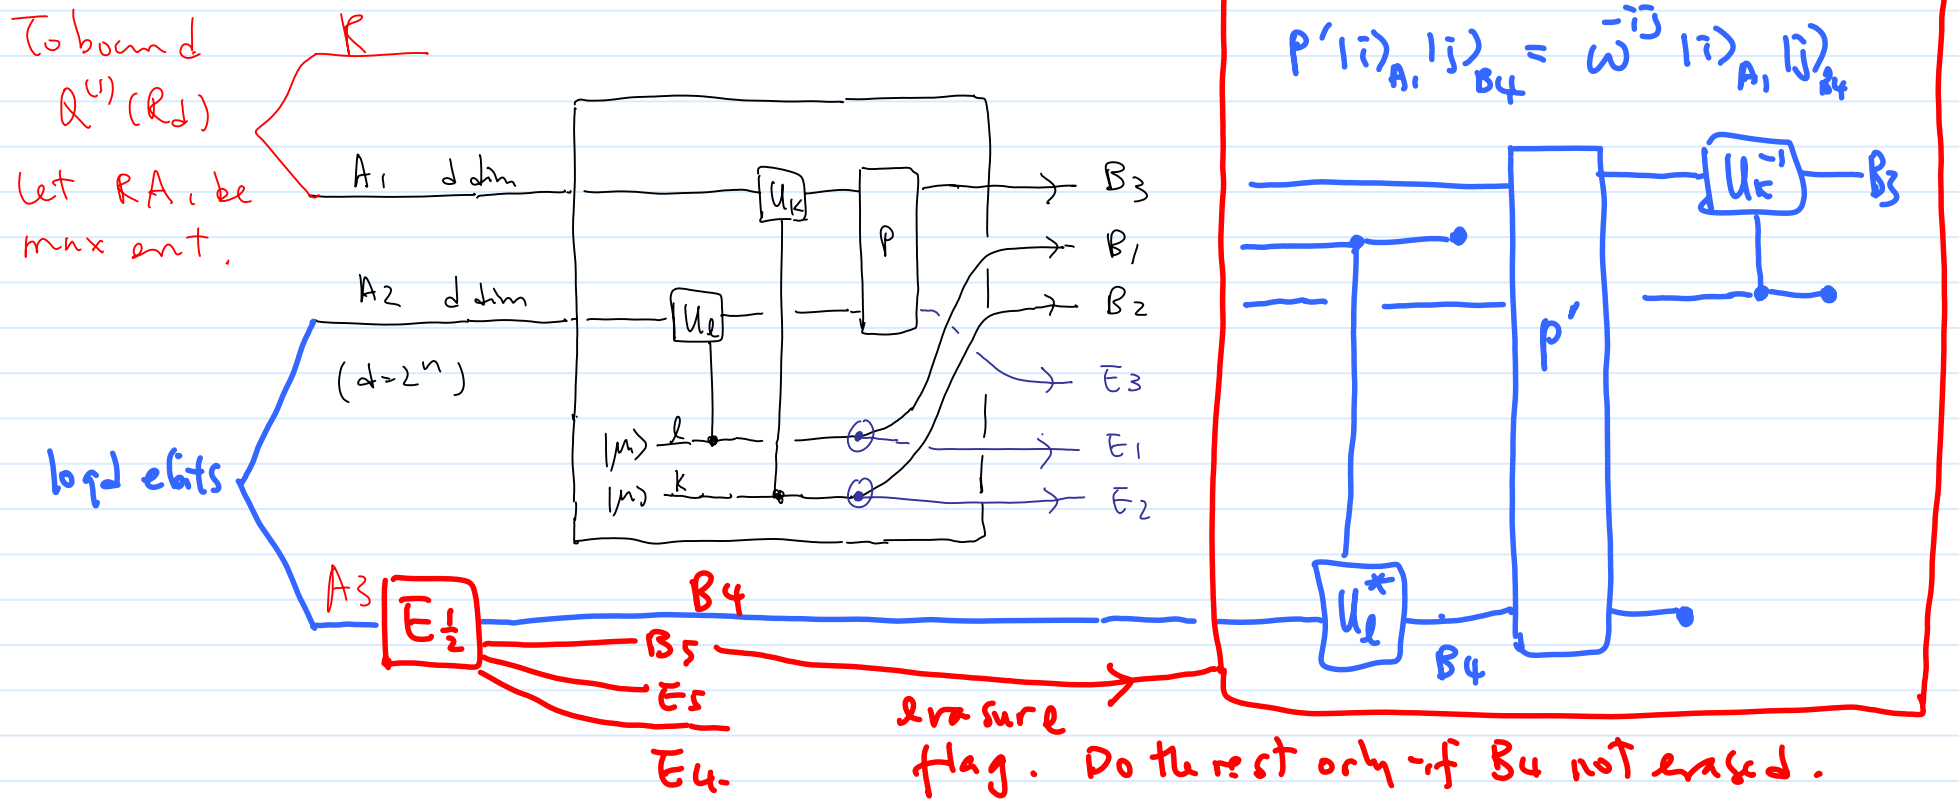 To bound
Q⁽¹⁾(Rd)
Let RA₁ be
max ent.
R
A₁ d dim
A2 d dim
(d=2ⁿ)
Uₖ
P
Uₗ
|μ⟩ l
|μ⟩ k
B3
B₁
B2
E3
E1
E2
log d ebits
A3
E½
B4
B5
E5
E4
erasure
flag. Do the rest only if B4 not erased.
P'|i⟩A₁|j⟩B4 = ω⁻ⁱʲ|i⟩A₁|j⟩B4
P'
Uₖ⁻¹
B3
Uₗ*
B4